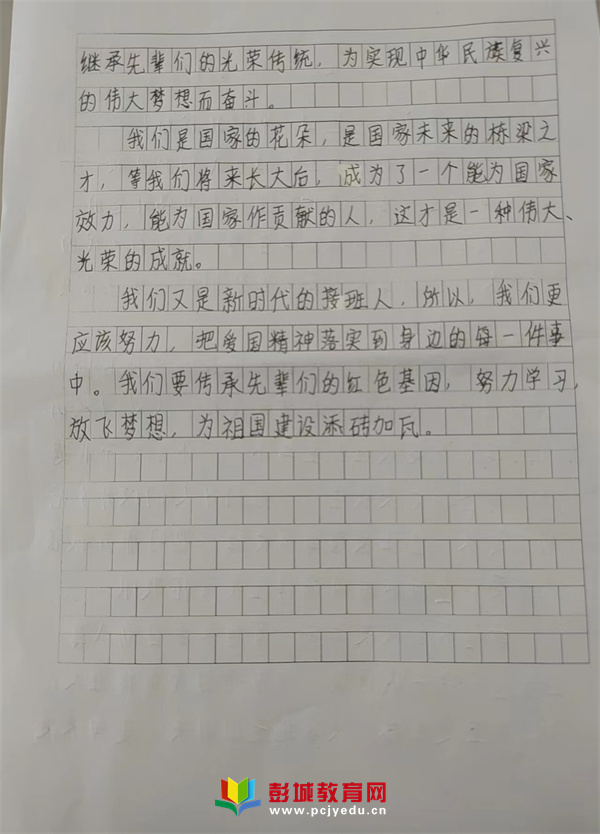 继承先辈们的光荣传统，为实现中华民族复兴
的伟大梦想而奋斗。
我们是国家的花朵，是国家未来的栋梁之
才，等我们将来长大后，成为了一个能为国家
效力，能为国家作贡献的人，这才是一种伟大、
光荣的成就。
我们又是新时代的接班人，所以，我们更
应该努力，把爱国精神落实到身边的每一件事
中。我们要传承先辈们的红色基因，努力学习，
放飞梦想，为祖国建设添砖加瓦。
彭城教育网
www.pcjyedu.cn